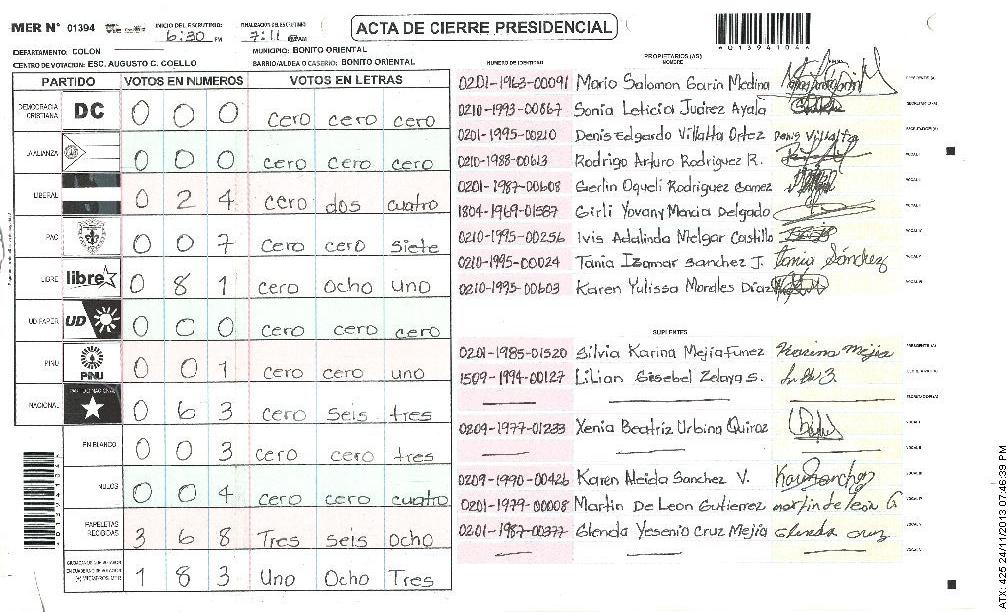 MER N° 01394
INICIO DEL ESCRUTINIO: 6:30 PM
7:11
ACTA DE CIERRE PRESIDENCIAL
DEPARTAMENTO: COLON
MUNICIPIO: BONITO ORIENTAL
CENTRO DE VOTACION: ESC. AUGUSTO C. COELLO
BARRIO/ALDEA O CASERIO: BONITO ORIENTAL
PARTIDO VOTOS EN NUMEROS VOTOS EN LETRAS
DEMOCRACIA CRISTIANA DC 0 0 0 cero cero cero
LA ALIANZA 0 0 0 cero cero cero
LIBERAL 0 2 4 cero dos cuatro
PAC 0 0 7 cero cero siete
LIBRE libre 0 8 1 cero ocho uno
UD FAPER UD 0 0 0 cero cero cero
PINU PINU 0 0 1 cero cero uno
NACIONAL 0 6 3 cero seis tres
EN BLANCO 0 0 3 cero cero tres
NULOS 0 0 4 cero cero cuatro
PAPELETAS RECIBIDAS 3 6 8 Tres seis ocho
1 8 3 Uno Ocho Tres
NUMERO DE IDENTIDAD
PROPIETARIOS (AS)
NOMBRE
0201-1963-00091 Mario Salomon Garin Medina
0210-1993-00867 Sonia Leticia Juárez Ayala
0201-1995-00210 Denis Edgardo Villatta Ortez Denis Villatta
0210-1988-00613 Rodrigo Arturo Rodriguez R.
0201-1987-00608 Gerlin Oqueli Rodriguez Gomez
1804-1969-01587 Girli Yovany Mencia Delgado
0210-1995-00256 Ivis Adalinda Melgar Castillo
0210-1995-00024 Tania Izamar Sanchez J. Tania Sánchez
0210-1995-00603 Karen Yulissa Morales Díaz
SUPLENTES
0201-1985-01520 Silvia Karina Mejía Funez Karina Mejia
1509-1994-00127 Lilian Gisebel Zelaya S.
0209-1977-01233 Xenia Beatriz Urbina Quiroz
0209-1990-00426 Karen Neida Sanchez V.
0201-1979-00008 Martin De Leon Gutierrez martin de león G
0201-1987-00377 Glenda Yesenia Cruz Mejía Glenda cruz
ATX: 425 24/11/2013 07:46:39 PM